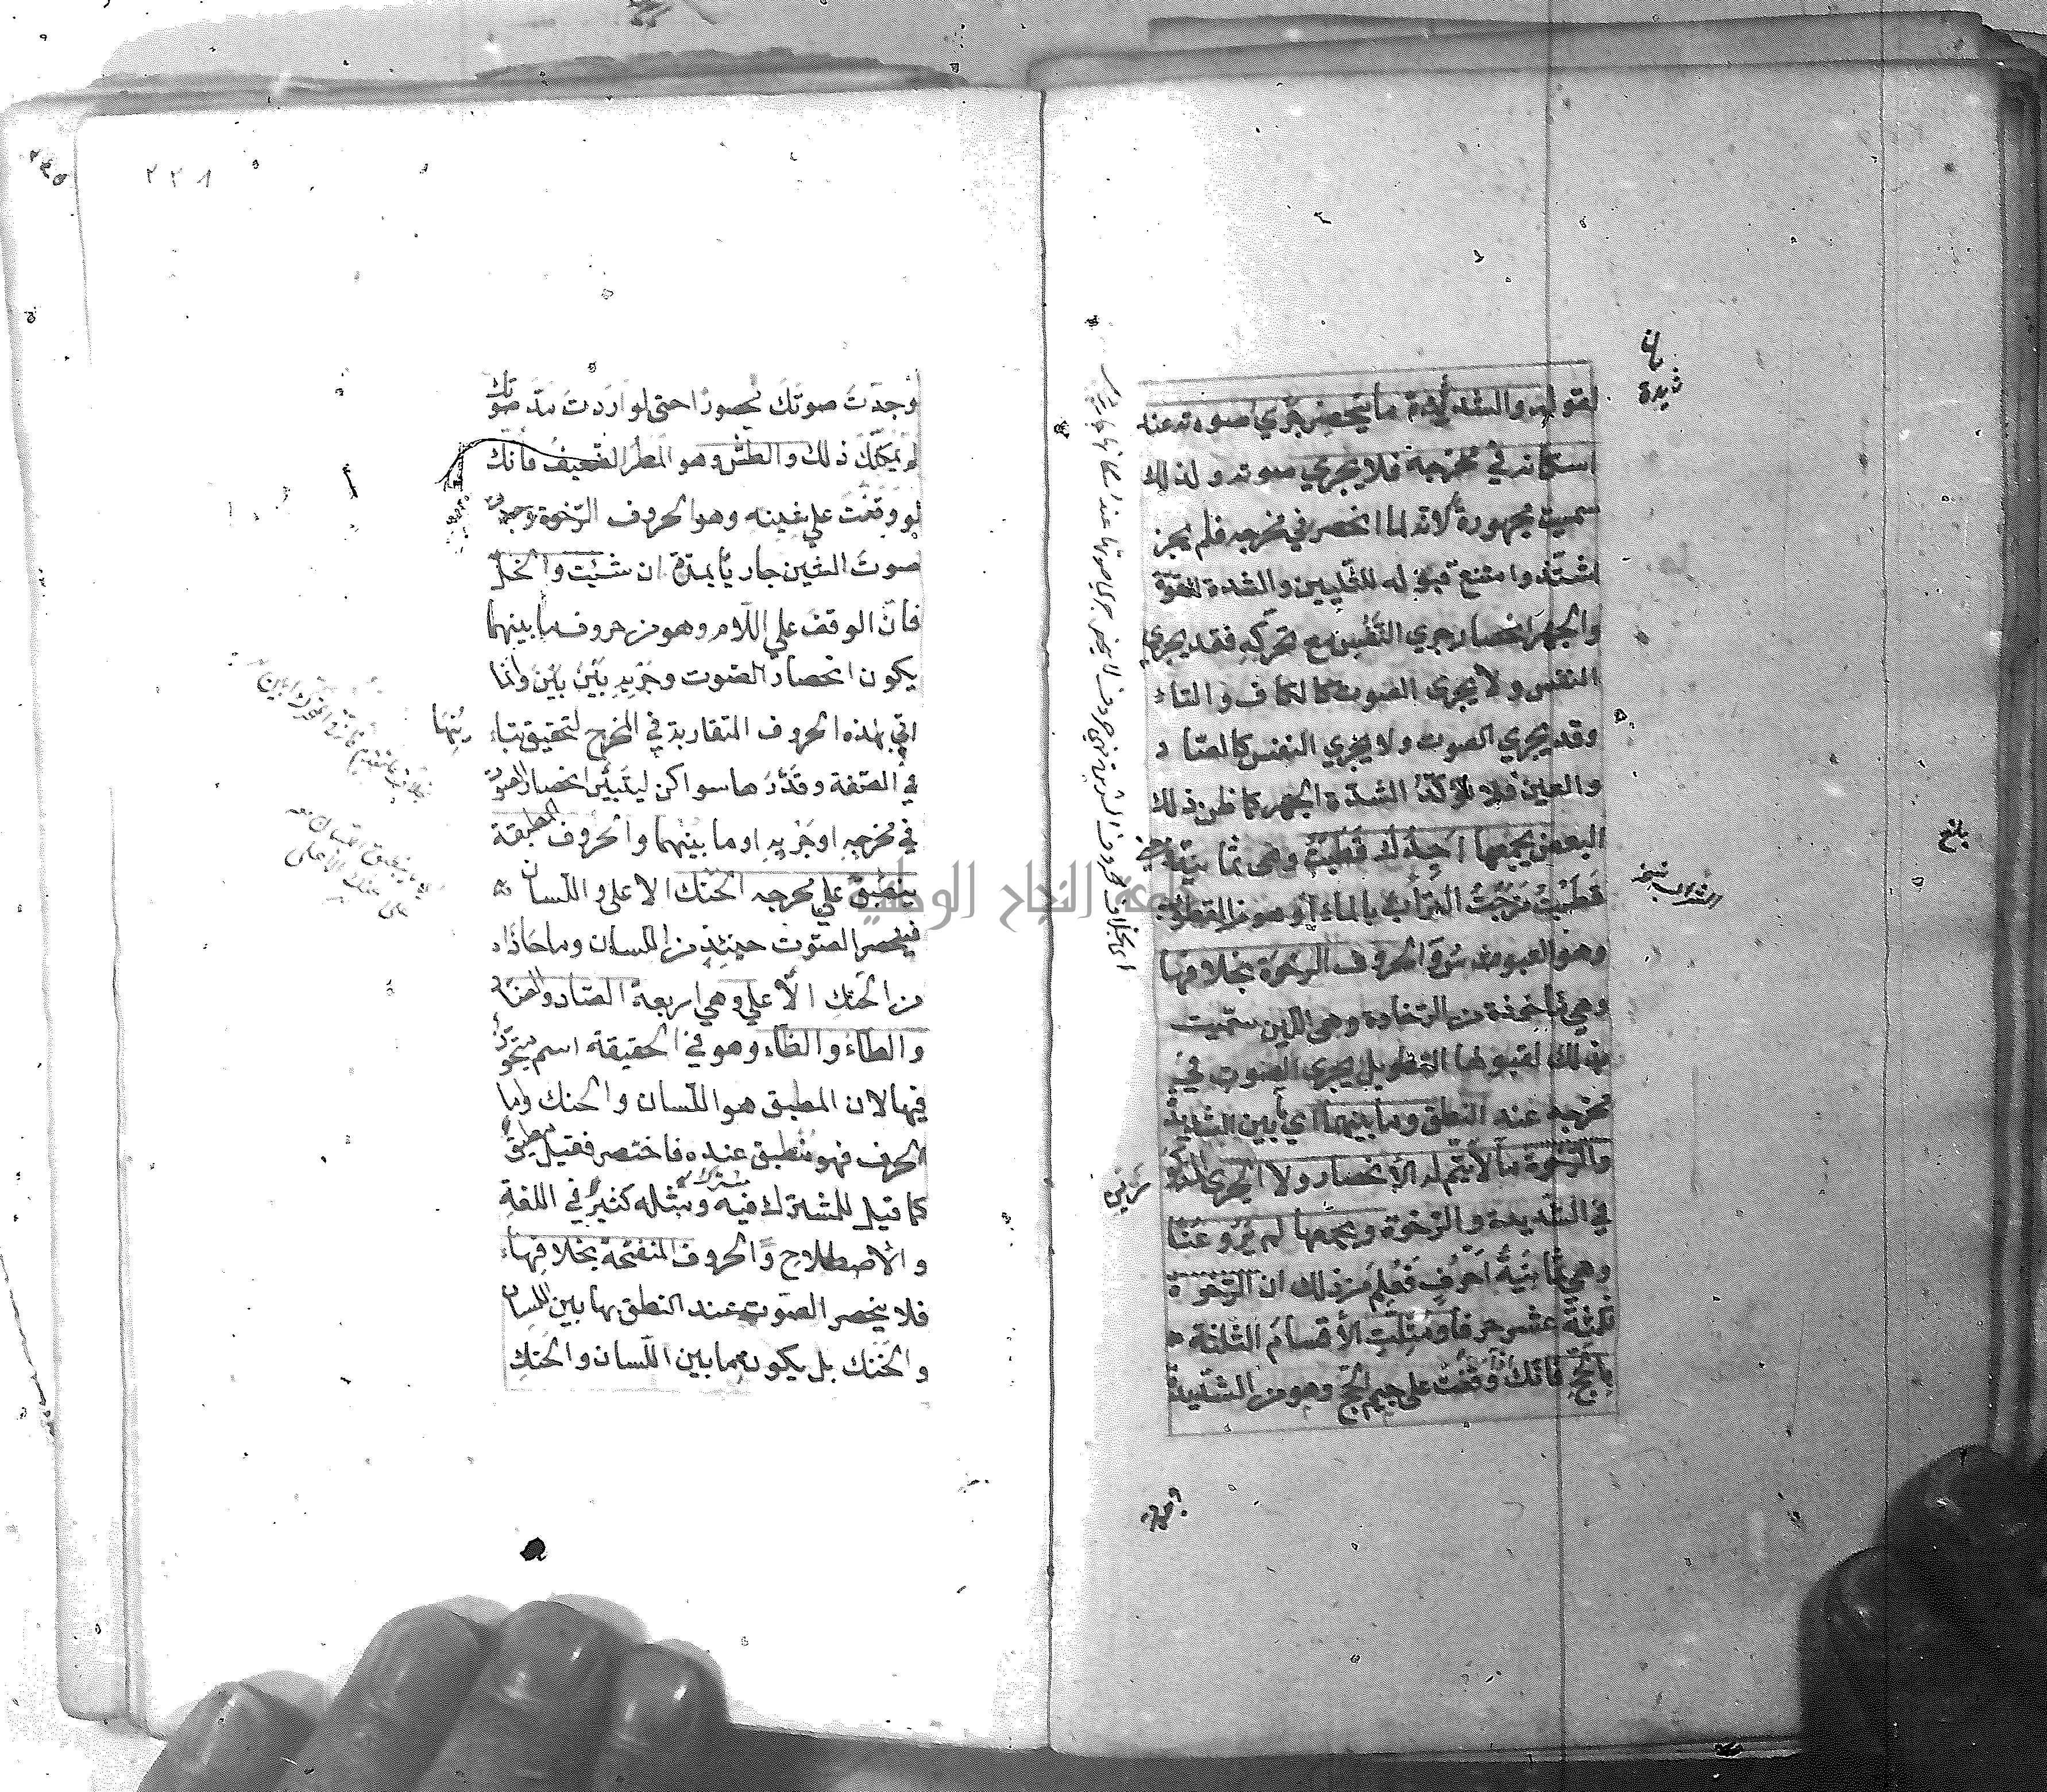 لقوله والشديدة ما ينحصر جري صوته عند
اسكانه في مخرجه فلا يجري صوته ولذلك
سميت مجهورة لانه لما انحصر في مخرجه فلم يجز
اشتد وامتنع قبوله للتليين والشدة لقوة
والجهر انحصار جري النفس مع تحركه فقد يجري
النفس ولا يجري الصوت كالكاف والتاء
وقد يجري الصوت ولا يجري النفس كالضاد
والعين فلا تؤكد الشدة الجهر كما ظن ذلك
البعض يجمعها اجدك قطبت وهي ثمانية
قطبت مزجت الشراب بالماء او من القطوب
وهو العبوسة والحروف الرخوة بخلافها
وهي مأخوذة من الرخاوة وهي اللين سميت
بذلك لقبولها التطويل يجري الصوت في
مخرجه عند النطق وما بينهما اي بين الشديدة
والرخوة ما لا يتم له الانحصار ولا الجري المذكور
في الشديدة والرخوة ويجمعها لم يروعنا
وهي ثمانية احرف فعلم من ذلك ان الرخوة
ثلثة عشر حرفا ومثلت الاقسام الثلثة
بالحج فانك لو وقفت على جيم الحج وهو من الشديدة
شديدة
الشراب نسخه
بلغ
وجدت صوتك محصورا حتى لو اردت مد صوتك
لم يمكنك ذلك والطش وهو المطر الضعيف فانك
لو وقفت على شينه وهو الحروف الرخوة وجدت
صوت الشين جاريا يمده ان شئت والخل
فان الوقف على اللام وهو من حروف ما بينهما
يكون انحصار الصوت وجريه بين بين وانما
اتي بهذه الحروف المتقاربة في المخرج لتحقيق تبا
ينها
في الصفة وقدرها سواكن ليتبين انحصار الصوت
في مخرجه او جريه او ما بينهما والحروف المطبقة
ينطبق على مخرجه الحنك الاعلى واللسان
فينحصر الصوت حينئذ من اللسان وما حاذاه
من الحنك الاعلى وهي اربعة الصاد والضاد
والطاء والظاء وهو في الحقيقة اسم متجوز
فيها لان المطبق هو اللسان والحنك واما
الحرف فهو منطبق عنده فاختصر فقيل مطبق
كما قيل للمشترك فيه مشترك ومثله كثير في اللغة
والاصطلاح والحروف المنفتحة بخلافها
فلا ينحصر الصوت عند النطق بها بين اللسان
والحنك بل يكون فيما بين اللسان والحنك
٢٢٨
جامعة النجاح الوطنية